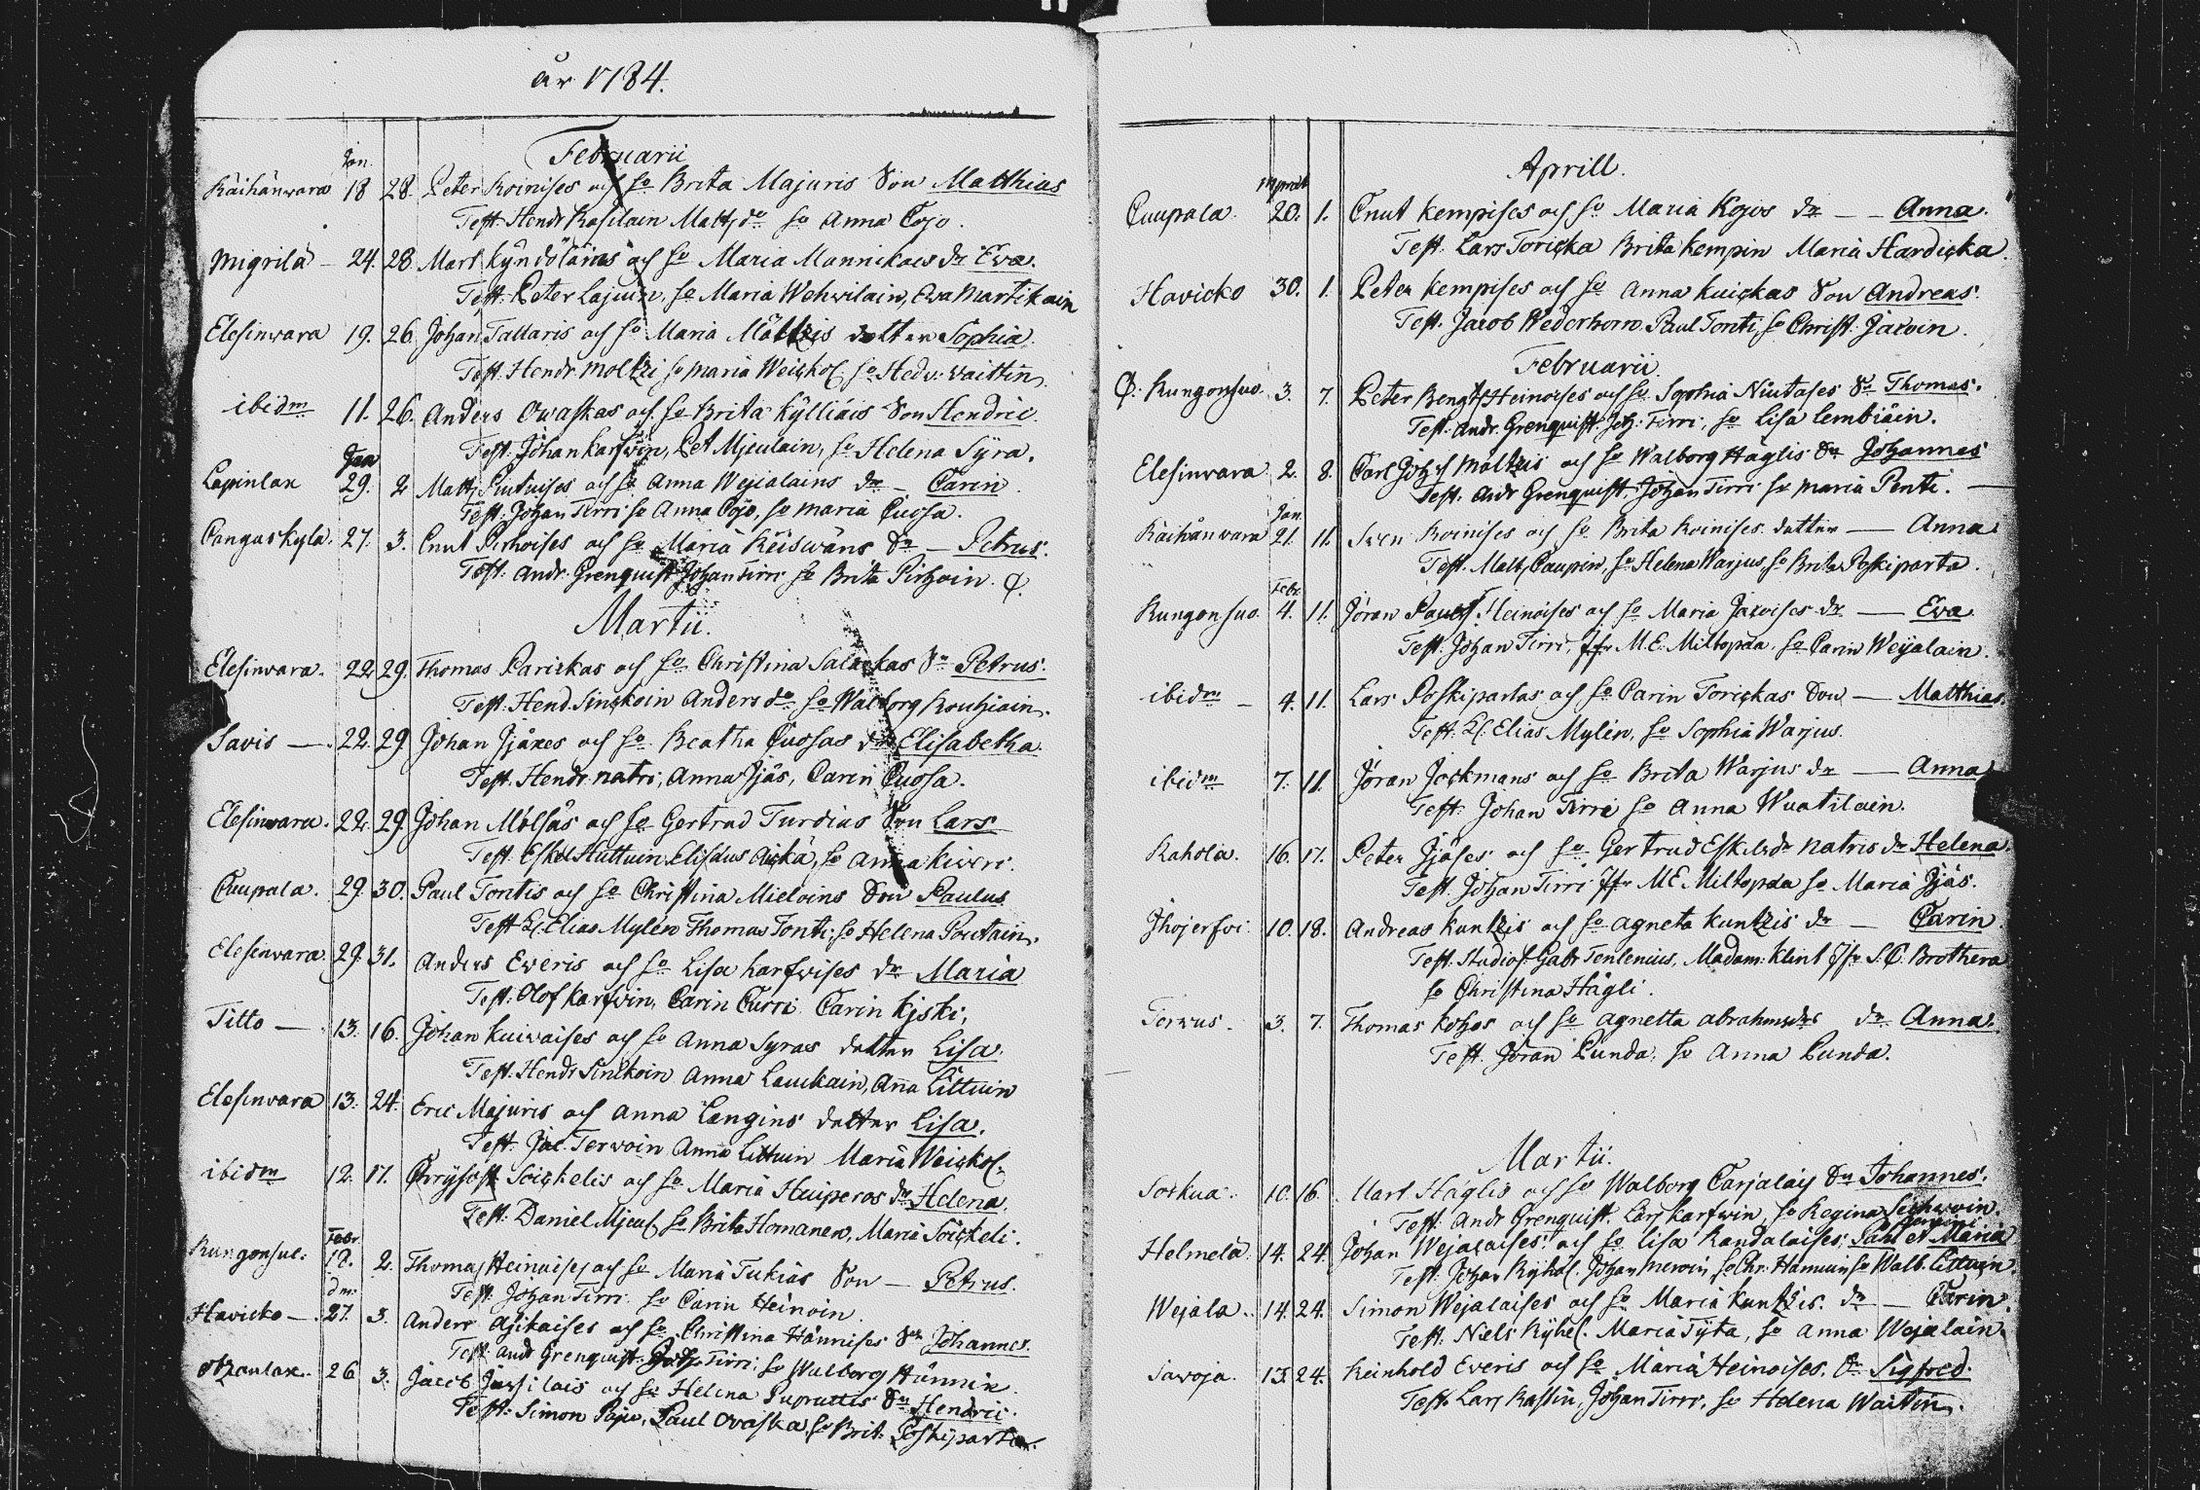 år 1784.
Februarii
Jan.
Räihänwara 18 28. Peter Koinises och ho Brita Majuris Son Matthias
Test: Hendr Rasilain Matts do ho Anna Cojo.
Migrilä – 24. 28 Mart Kyndöläins och ho Maria Mannikaes dr Eva.
Test: Peter Lajuin, ho Maria Wehwilain, Eva Martikain
Elesinvara 19. 26. Johan Tattaris och ho Maria Möltzis dotter Sophia.
Test: Hendr Moltzi ho Maria Weickol. ho Hedv: Waittin.
ibidm 11. 26. Anders Owaskas och ho Brita Kylliäis Son Hendric
Test: Johan Karfwin, Pet Mjeulain, ho Helena Syra.
Jan
Lapinlax 29. 2 Matts Pintuises och ho Anna Wejalains dr – Carin.
Test: Johan Tirri ho Anna Cojo, ho Maria Cuosa.
Cangaskyla. 27. 3. Cnut Pirhoises och ho Maria Reiswäns Sn – Petrus.
Test: Andr. Grenquist Johan Tirri ho Brita Pirhoin. C.
Martii.
Elesinvara. 22 29. Thomas Parickas och ho Christina Salackas Sn Petrus.
Test: Hend. Sinckoin Anders do ho Walborg Kouhiain.
Savis —. 22. 29 Johan Jjäxes och ho Beatha Cuosas dr Elisabetha.
Test. Hendr. Natri, Anna Jjäs, Carin Cuosa.
Elesinvara. 22. 29. Johan Mölsäs och ho Gertrud Turdias Son Lars
Test. Eskel Huttuin Elisaus Aickä, ho Anna Kiveri.
Cuupala. 29. 30. Paul Tontis och ho Christina Mieloins Son Paulus
Test Cl. Elias Mylén Thomas Tonti. ho Helena Poutain.
Elesinvara. 29. 31. Anders Everis och ho Lisa Karfwises dr Maria
Test: Olof Karfwin, Carin Curri Carin Kiski,
Titto —. 13. 16. Johan Kuivaises och ho Anna Syras dotter Lisa.
Test. Hendr Sinckoin Anna Lauckain, Ana Littuin
Elesinvara 13. 24. Eric Majuris och Anna Längins dotter Lisa.
Test. Jac. Terwoin Anna Littuin Maria Weickol.
ibidm 12. 17. Chrysost Soickelis och ho Maria Huiperos dr Helena.
Test: Daniel Mjeul. ho Brita Homanen, Maria Soickeli.
Febr.
Kungonsuo. 18. 2. Thomas Heinoises och ho Maria Tukias Son — Petrus.
Test. Johan Tirri ho Carin Heinoin
dm.
Havicko —. 27. 3. Anders Äjikaises och ho Christina Hännises Sn Johannes.
Test Andr Grenquist. Joh. Tirri ho Walborg Hännin.
26 3. Jacob och ho Helena Puputtis Sn Hendric.
Test: Simon Paju, Paul Ovaska, ho Brit. Poskiparta.
Aprill.
Martii
Cuupala. 20. 1. Cnut Kempises och ho Maria Kojos dr – – Anna.
Test. Lars Toricka Brita Kempin Maria Hardicka.
Havicko 30. 1. Peter Kempises och ho Anna Kuickas Son Andreas.
Test. Jacob Wederhorn. Paul Tonti, ho Christ. Jäxoin.
Februarii
C. Kungonsuo. 3. 7. Peter Bengts Heinoises och ho Sophia Niutases Sn Thomas.
Test: Andr. Grenquist. Joh: Tirri, ho Lisa Lembiäin.
Elesinvara 2. 8. Carl Joh. Möltzis och ho Walborg Häglis Sn Johannes
Test. Andr Grenquist, Johan Tirri ho Maria Penti. —
Jan.
Räihänwara 21. 11. Sven Koinises och ho Brita Koinises dotter — Anna
Test. Matts Caupin, ho Helena Warjus, ho Brita Poskiparta.
Febr.
Kungonsuo. 4. 11. Jöran Pauls. Heinoises och ho Maria Jäxoises dr — Eva
Test. Johan Tirri, Jfr M. E. Miltopæa. ho Carin Weijalain.
ibidm – 4. 11. Lars Poskipartas och ho Carin Torickas Son — Matthias.
Test. Cl. Elias Mylén, ho Sophia Warjus.
ibidm 7. 11. Jöran Jockmans och ho Brita Warjus dr — Anna
Test: Johan Tirri ho Anna Wuatilain.
Raholа. 16. 17. Peter Jjäses och ho Gertrud Eskelsdr Natris dr Helena
Test. Johan Tirri Jfr M E. Miltopæa ho Maria Jjäs.
Ihojerfvi 10. 18. Andreas Kuntzis och ho Agneta Kuntzis dr — Carin
Test. Studios. Gabr Tenlenius, Madam. Klint Jfr S. C. Brothera
ho Christina Hägli.
Terwus. 3. 7. Thomas Kohos och ho Agnetta Abrahmsdr dr Anna.
Test. Jöran Punda. ho Anna Punda.
Martii.
Sorkua. 10. 16. Mart Häglis och ho Walborg Carjalais Sn Johannes.
Test: Andr Grenquist. Lars Karfwin, ho Regina Seihwoin.
gemini
Helmelä 14. 24. Johan Wejalaises och ho Lisa Randalaises Pahl et Maria
Test. Johan Kyhel. Johan Meroin, ho Chr. Hamun ho Walb. Littuin.
Wejala. 14. 24. Simon Wejalaises och ho Maria Kuntzis. dr – Carin.
Test. Niels Kyhel. Maria Tyta, ho Anna Wejalain.
Savoja. 13. 24. Reinhold Everis och ho Maria Heinoises. Sn Sigfred.
Test. Lars Rastin, Johan Tirri, ho Helena Waitin.